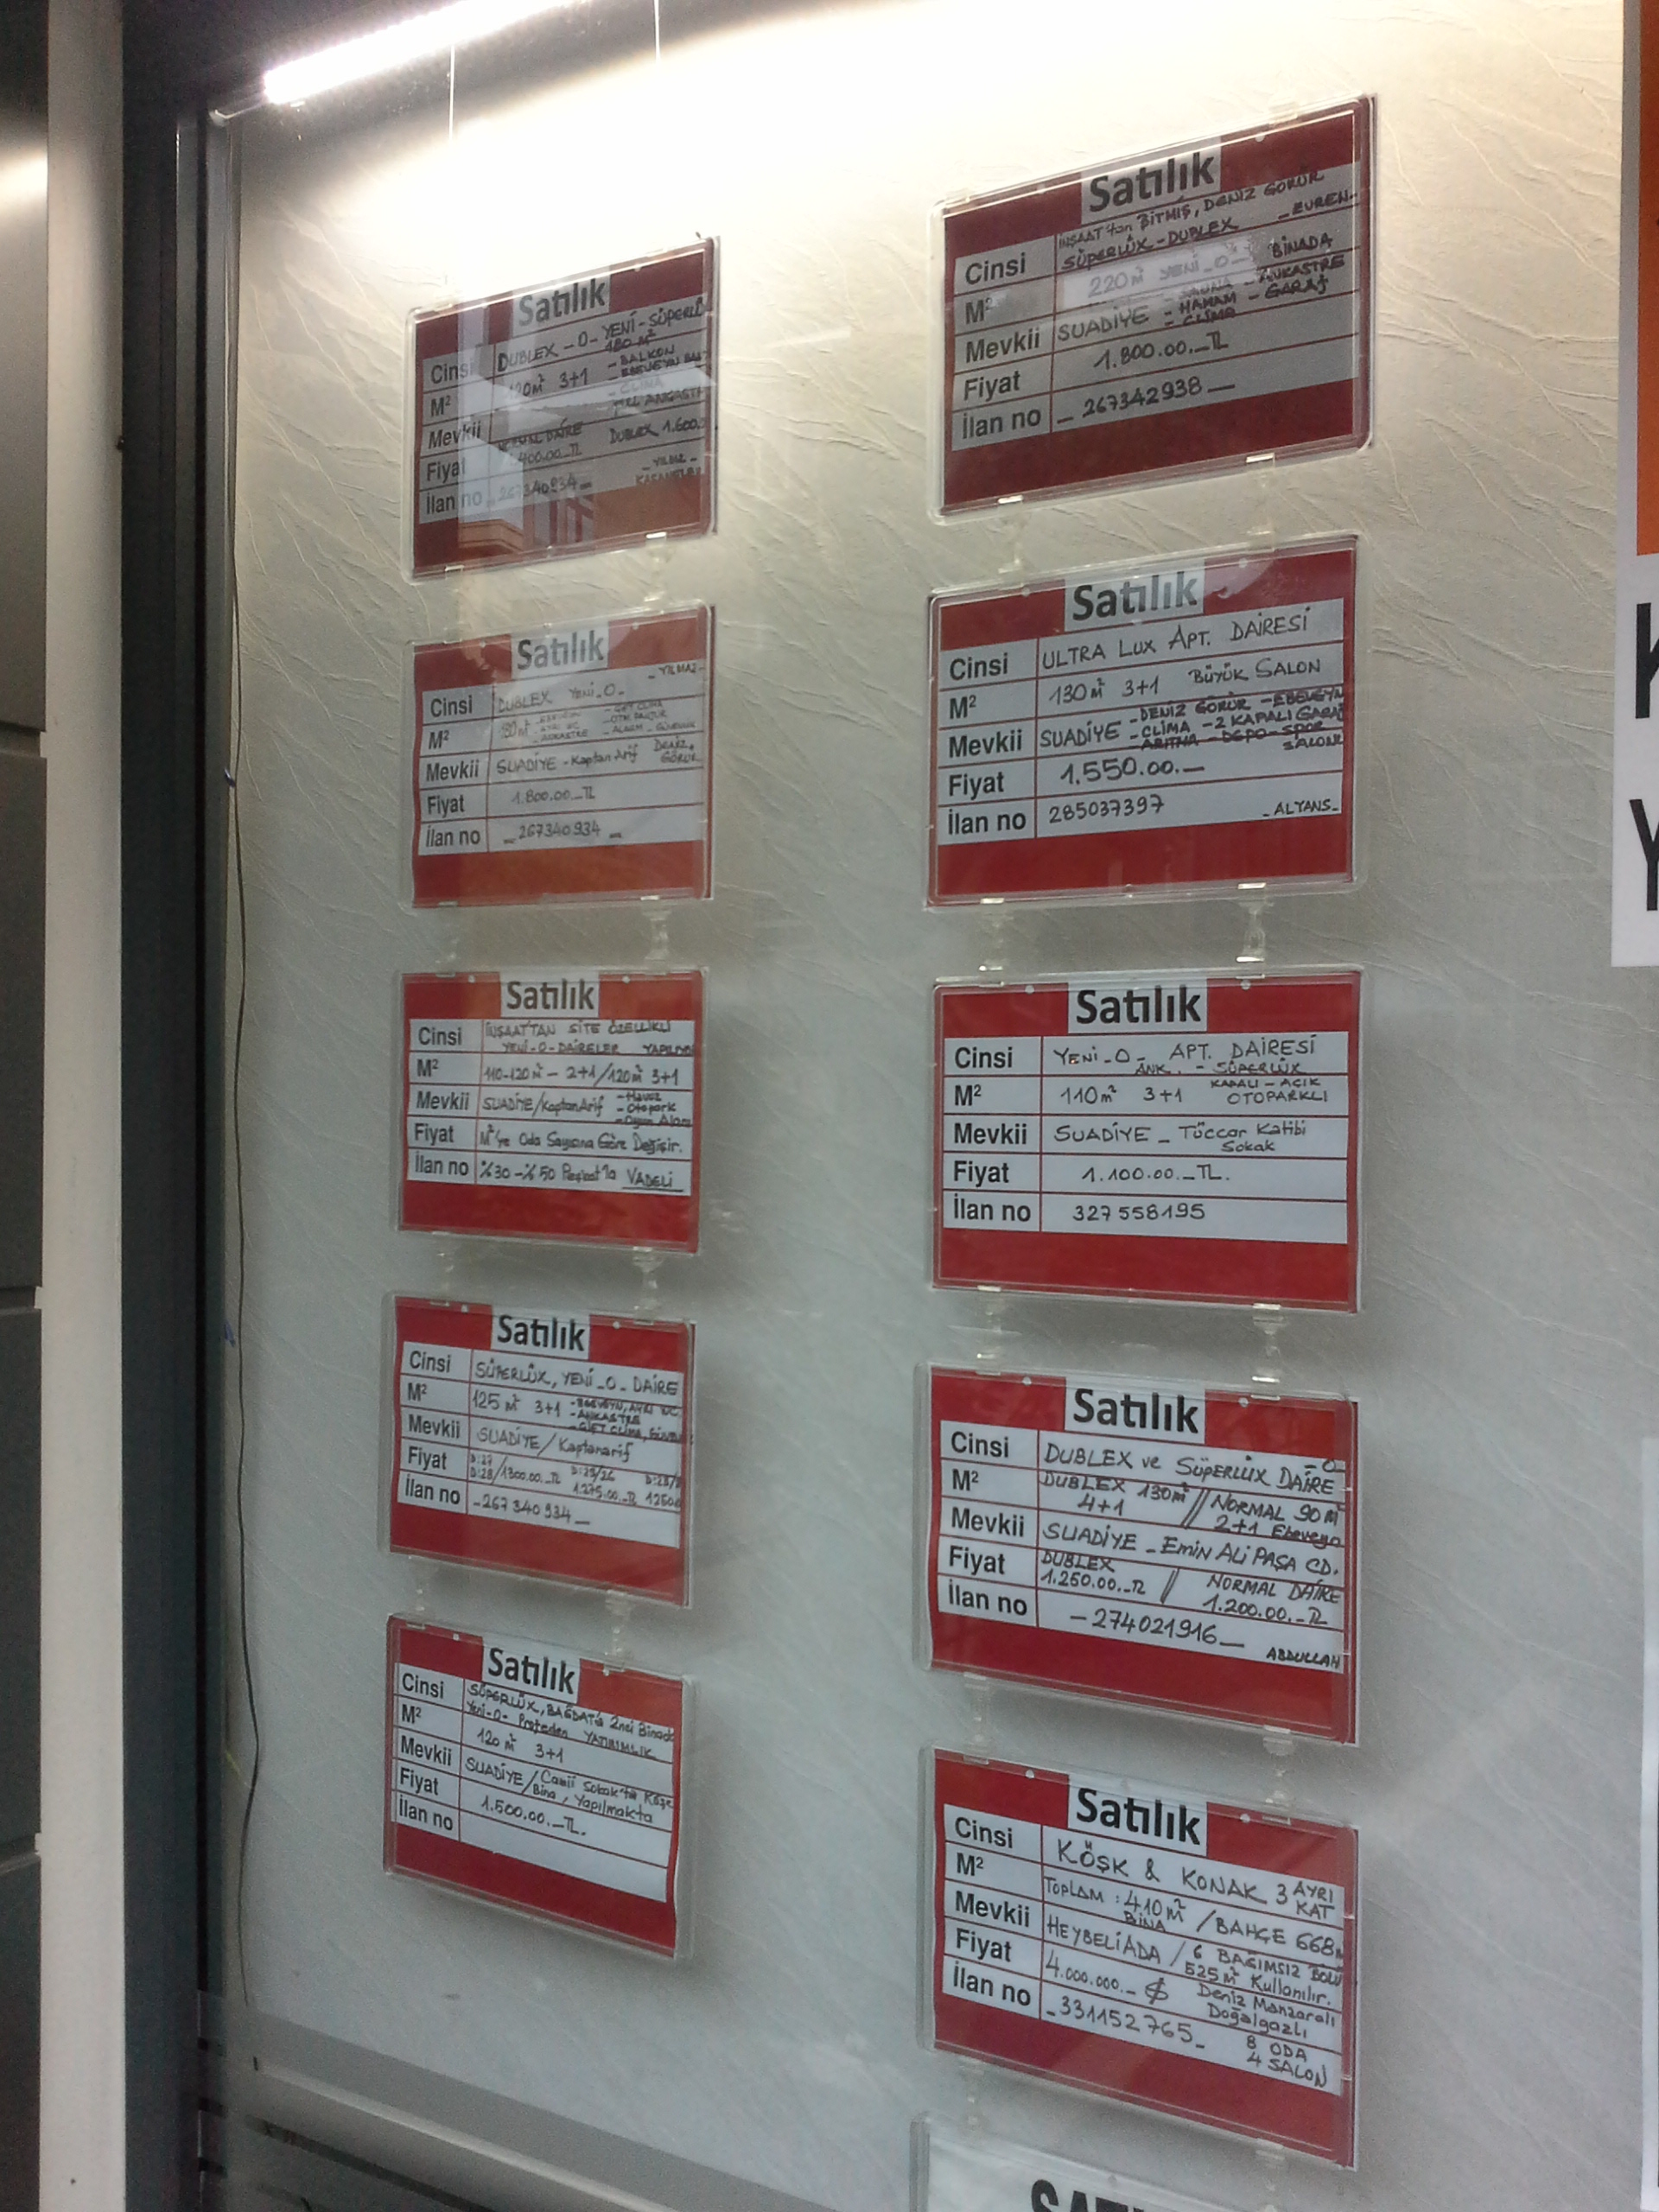 Satılık
Cinsi DUBLEX - 0 - YENİ - SÜPERLÜ
180 M²
M² 120 m² 3+1 - BALKON
- EBEVEYN
- CLİMA
Mevkii ANKASTR
NORMAL DAİRE
Fiyat 400.00.-TL DUBLEX 1.600.
İlan no - 267340934 - - YILDIZ -
Satılık
Cinsi DUBLEX YENİ - 0 - - YILMAZ -
M²
- ANKASTRE - ALARM - GÜVENLİK
Mevkii SUADİYE - Kaptan Arif DENİZ GÖRÜR
Fiyat 1.800.00.-TL
İlan no - 267340934 -
Satılık
Cinsi İNŞAAT'TAN SİTE ÖZELLİKLİ
YENİ - 0 - DAİRELER YAPILIYOR
M² 110-120 m² - 2+1/120 m² 3+1
Mevkii SUADİYE/Kaptan Arif - Havuz
- Otopark
- Oyun Alanı
Fiyat M²'ye Oda Sayısına Göre Değişir.
İlan no %30 - %50 Peşinat'la VADELİ
Satılık
Cinsi SÜPERLÜX, YENİ - 0 - DAİRE
M² 125 m² 3+1 - EBEVEYN, AYRI WC
- ANKASTRE
Mevkii SUADİYE/Kaptanarif
Fiyat D:27
D:28/1300.00.-TL D:25/26 1.275.00.-TL
İlan no - 267340934 -
Satılık
Cinsi SÜPERLÜX, BAĞDAT'a 2nci Binada
Yeni - 0 - Projeden YATIRIMLIK
M² 120 m² 3+1
Mevkii SUADİYE/Camii Sokak'ta Köşe
Bina, Yapılmakta
Fiyat 1.500.00.-TL.
İlan no
Satılık
Cinsi İNŞAAT'tan BİTMİŞ, DENİZ GÖRÜR
SÜPERLÜX - DUBLEX - EUREN -
M² 220 m² YENİ - 0 - BİNADA
Mevkii SUADİYE - SAUNA - ANKASTRE
- HAMAM - GARAJ
- CLİMA
Fiyat 1.800.00.-TL
İlan no - 267342938 -
Satılık
Cinsi ULTRA LUX APT. DAİRESİ
M² 130 m² 3+1 BÜYÜK SALON
Mevkii SUADİYE - DENİZ GÖRÜR - EBEVEYN
- CLİMA - 2 KAPALI GARAJ
- ARITMA - DEPO - SPOR SALONU
Fiyat 1.550.00.-
İlan no 285037397 - ALYANS -
Satılık
Cinsi YENİ - 0 - APT. DAİRESİ
ANK. - SÜPERLÜX
M² 110 m² 3+1 KAPALI - AÇIK
OTOPARKLI
Mevkii SUADİYE - Tüccar Katibi
Sokak
Fiyat 1.100.00.-TL.
İlan no 327 558195
Satılık
Cinsi DUBLEX ve SÜPERLÜX DAİRE - 0 -
M² DUBLEX 130 m² // NORMAL 90 m²
4+1 2+1 Ebeveyn
Mevkii SUADİYE - EMİN ALİ PAŞA CD.
Fiyat DUBLEX 1.250.00.-TL // NORMAL DAİRE 1.200.00.-TL
İlan no - 274021916 - ABDULLAH
Satılık
Cinsi KÖŞK & KONAK 3 AYRI KAT
M² TOPLAM : 410 m² / BAHÇE 668 m
BİNA
Mevkii HEYBELİADA / 6 BAĞIMSIZ BÖLÜ
525 m² Kullanılır.
Fiyat 4.000.000.- $ Deniz Manzaralı
Doğalgazlı
İlan no - 331152765 - 8 ODA
4 SALON